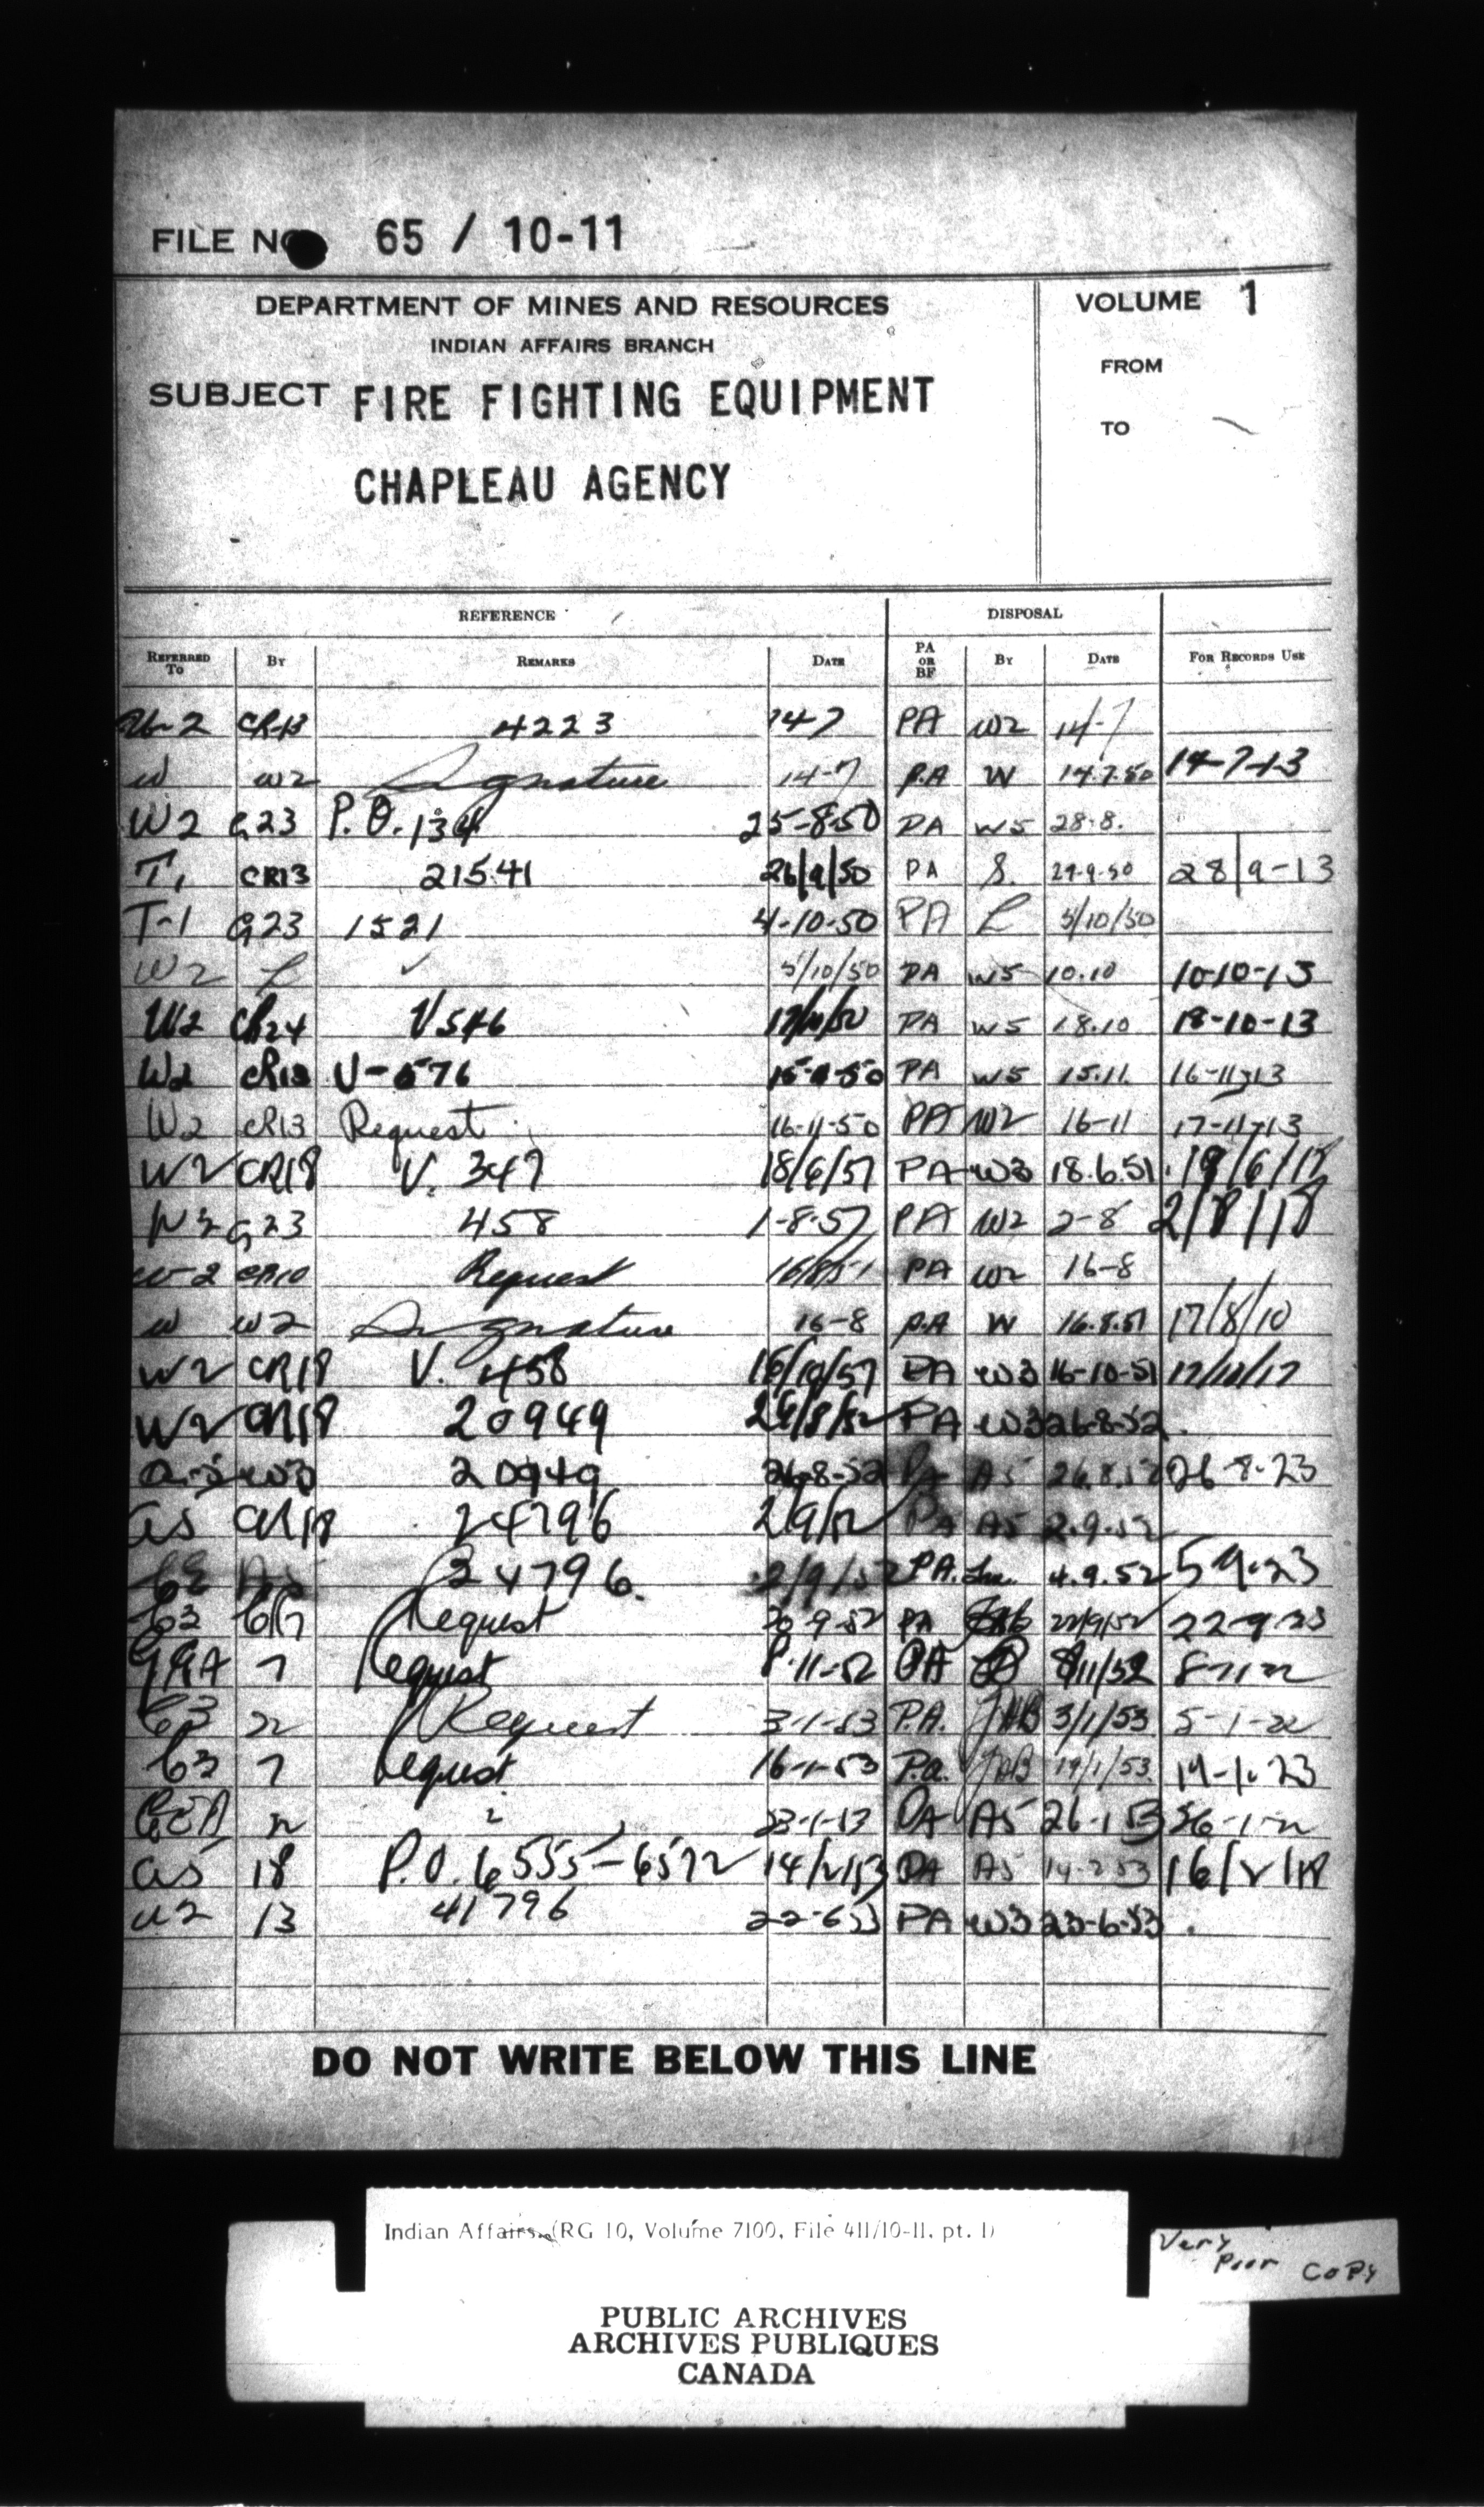 FILE NO 65 / 10-11
DEPARTMENT OF MINES AND RESOURCES
INDIAN AFFAIRS BRANCH
SUBJECT FIRE FIGHTING EQUIPMENT
CHAPLEAU AGENCY
VOLUME 1
FROM
TO
REFERENCE DISPOSAL
REFERRED TO BY REMARKS DATE PA OR BF BY DATE FOR RECORDS USE
CR13 4223 14-7 PA W2 14-7
W W2 Signature 14-7 P.A W 14.7.50 14-7-13
W2 G23 P.O. 134 25-8-50 PA W5 28.8.
T1 CR13 21541 26/9/50 PA S. 28/9-13
T-1 G23 1521 4-10-50 PA L 5/10/50
W2 L ✓ 5/10/50 PA W5 10.10 10-10-13
W2 CR24 V546 PA W5 18.10 18-10-13
W2 CR13 V-576 PA W5 15.11. 16-11-13
W2 CR13 Request 16-11-50 PA W2 16-11 17-11-13
W2 CR18 V. 347 18/6/51 PA W3 18.6.51. 19/6/18
W2 G23 458 1-8-51 PA W2 2-8 2/8/18
W-2 CR10 Request 16/8/51 PA W2 16-8
W W2 Signature 16-8 P.A W 16.8.51 17/8/10
W2 CR18 V. 458 16/10/51 PA W3 16-10-51
W2 CR18 20949 26/8/52 PA W3 26-8-52.
A-5 W3 20949 26-8-52 PA A5 26.8.52 26-8-23
A5 CR18 24796 2/9/52 PA A5 2-9-52
24796. 2/9/52 PA. 4.9.52 5-9-23
Request 20-9-52 PA 22/9/52 22-9-23
7 Request 8-11-52 PA 8/11/52
Request 3-1-53 P.A. JAB 3/1/53
7 Request 16-1-53 P.A. JAB 19/1/53. 19-1-23
PA A5 26-1-53
A5 18 P.O. 6555-6572 14/2/53 PA A5 14-2-53 16/2/18
13 41796 22-6-53 PA W3 23-6-53
DO NOT WRITE BELOW THIS LINE
Indian Affairs. (RG 10, Volume 7100, File 411/10-11, pt. 1)
Very Poor Copy
PUBLIC ARCHIVES
ARCHIVES PUBLIQUES
CANADA